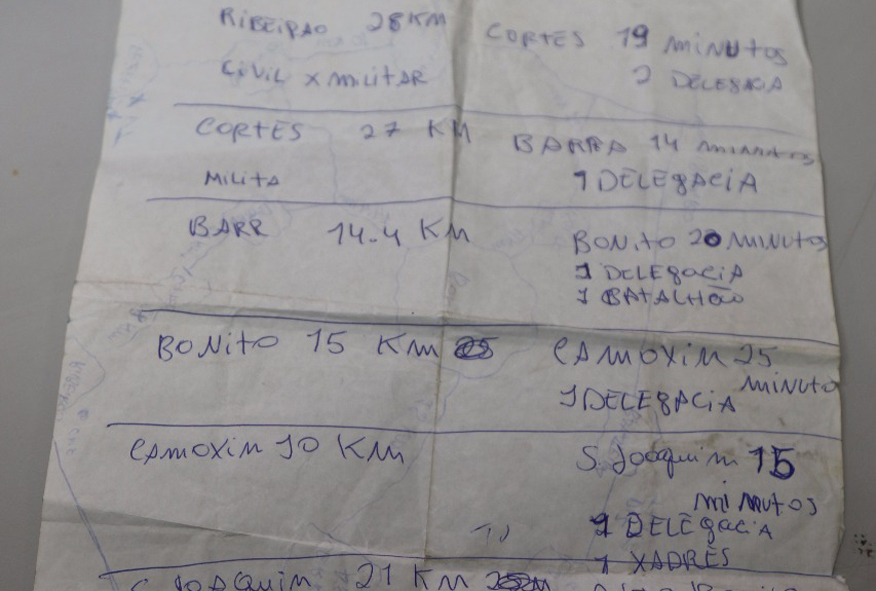 RIBEIRAO 28 KM
CORTES 19 minutos
CIVIL X MILITAR
1 DELEGACIA
CORTES 27 KM
BARRA 14 minutos
MILITA
1 DELEGACIA
BARR 14.4 KM
BONITO 20 MINUTOS
1 DELEGACIA
1 BATALHÃO
BONITO 15 KM
CAMOXIM 25
minuto
1 DELEGACIA
CAMOXIM 10 KM
S. Joaquim 15
minutos
1 DELEGACIA
1 XADRES
S JOAQUIM 21 KM